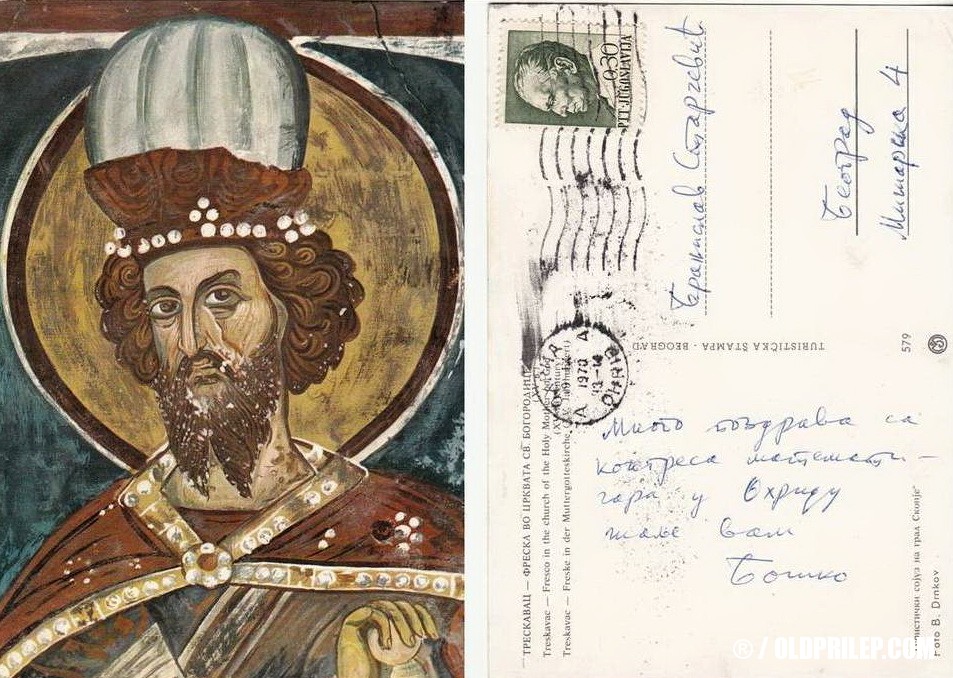 0.30
PTT-JUGOSLAVIJA
Бранислав Старчевић
Београд
Митарска 4
1970
OHRID
TURISTIČKA ŠTAMPA - BEOGRAD
579
Много поздрава са
конгреса математи-
чара у Охриду
шаље вам
Бошко
ТРЕСКАВАЦ — ФРЕСКА ВО ЦРКВАТА СВ. БОГОРОДИЦА
Treskavac — Fresco in the church of the Holy Mother of God
Treskavac — Freske in der Muttergotteskirche
сојуз на град Скопје
Foto B. Drnkov
® / OLDPRILEP.COM